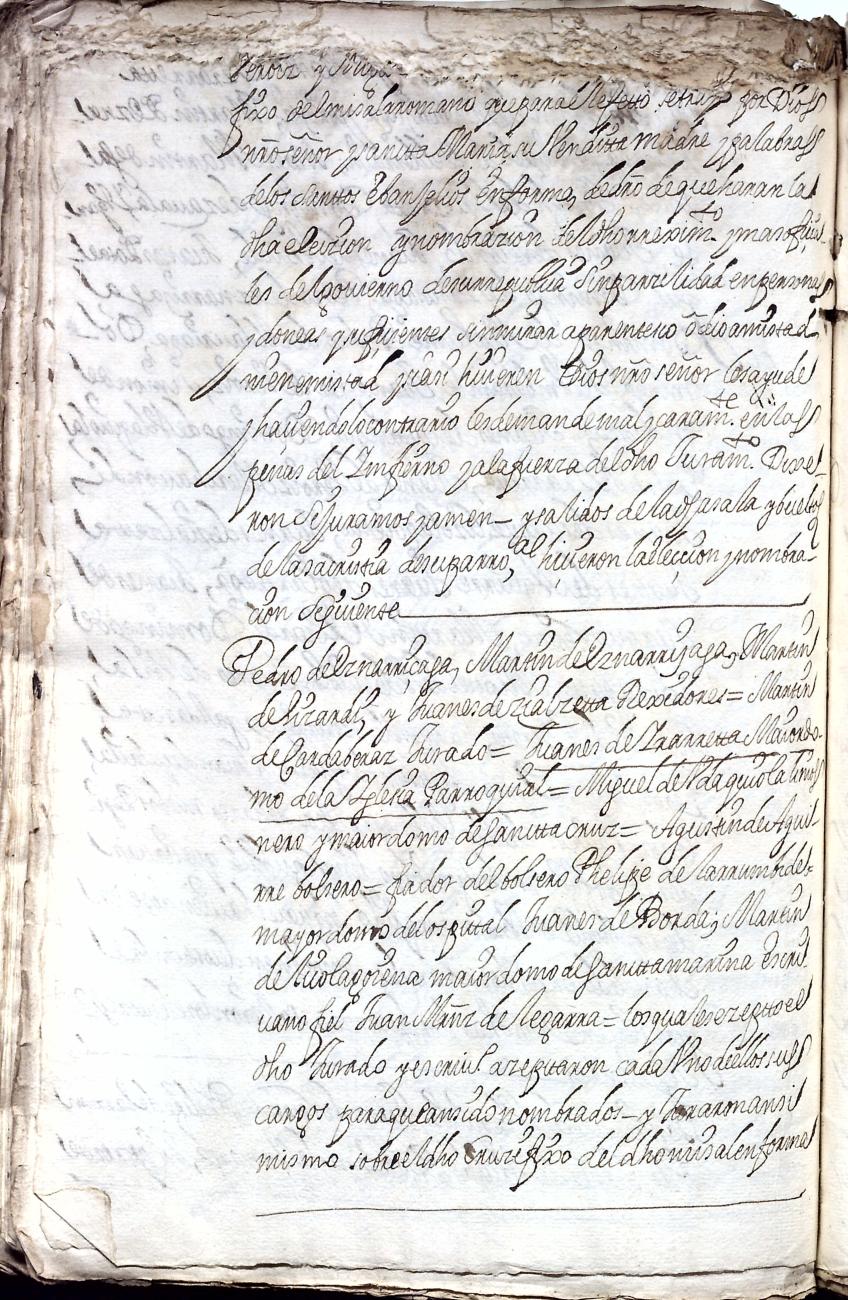 fixo del misal romano que para el efetto se trujo por Dios
nro señor y Santta Maria su Vendita madre y palabras
de los Santtos Ebangelios en forma, de dro de que haran la
dha elecion y nombrazion del dho rreximto y mas ofiçia
les del govierno de su rrepublica sin parzilidad en personas
ydoneas y sufiçientes sin mirar a parentesco odio amistad
ni enemistad y si asi hiçieren Dios nro señor les ayude
y haçiendo lo contrario les demande mal y caramte en las
penas del Infierno y a la fuerza del dho Juramto Dixe
ron Si juramos y amen y salidos de la dha sala y bueltos
de la sacristia de su parro,al hiçieron la eleçion y nombra
cion Siguiente
Pedro de Oznarriçaga, Martin de Oznarrijaga, Martin
de Lizardi, y Juanes de zialzetta Rexidores = Martin
de Cardaberaz Jurado = Juanes de Yrarretta Maiordo
mo de la Yglesia Parroquial = Miguel de Ydaquiola limos
nero y maiordomo de Santta cruz = Agustin de Agui
rre bolsero = fiador del bolsero Phelipe de larrumbide =
mayordomo del ospital Juanes de Borda; Martin
de Nicolagorena maiordomo de Santta marina escri
uano fiel Juan Mrñz de Segarra = los quales ezeptto el
dho Jurado y escriuo azeptaron cada Vno de ellos sus
cargos para que an sido nombrados y Juraron ansi
mismo sobre el dho Cruzifixo del dho misal en forma